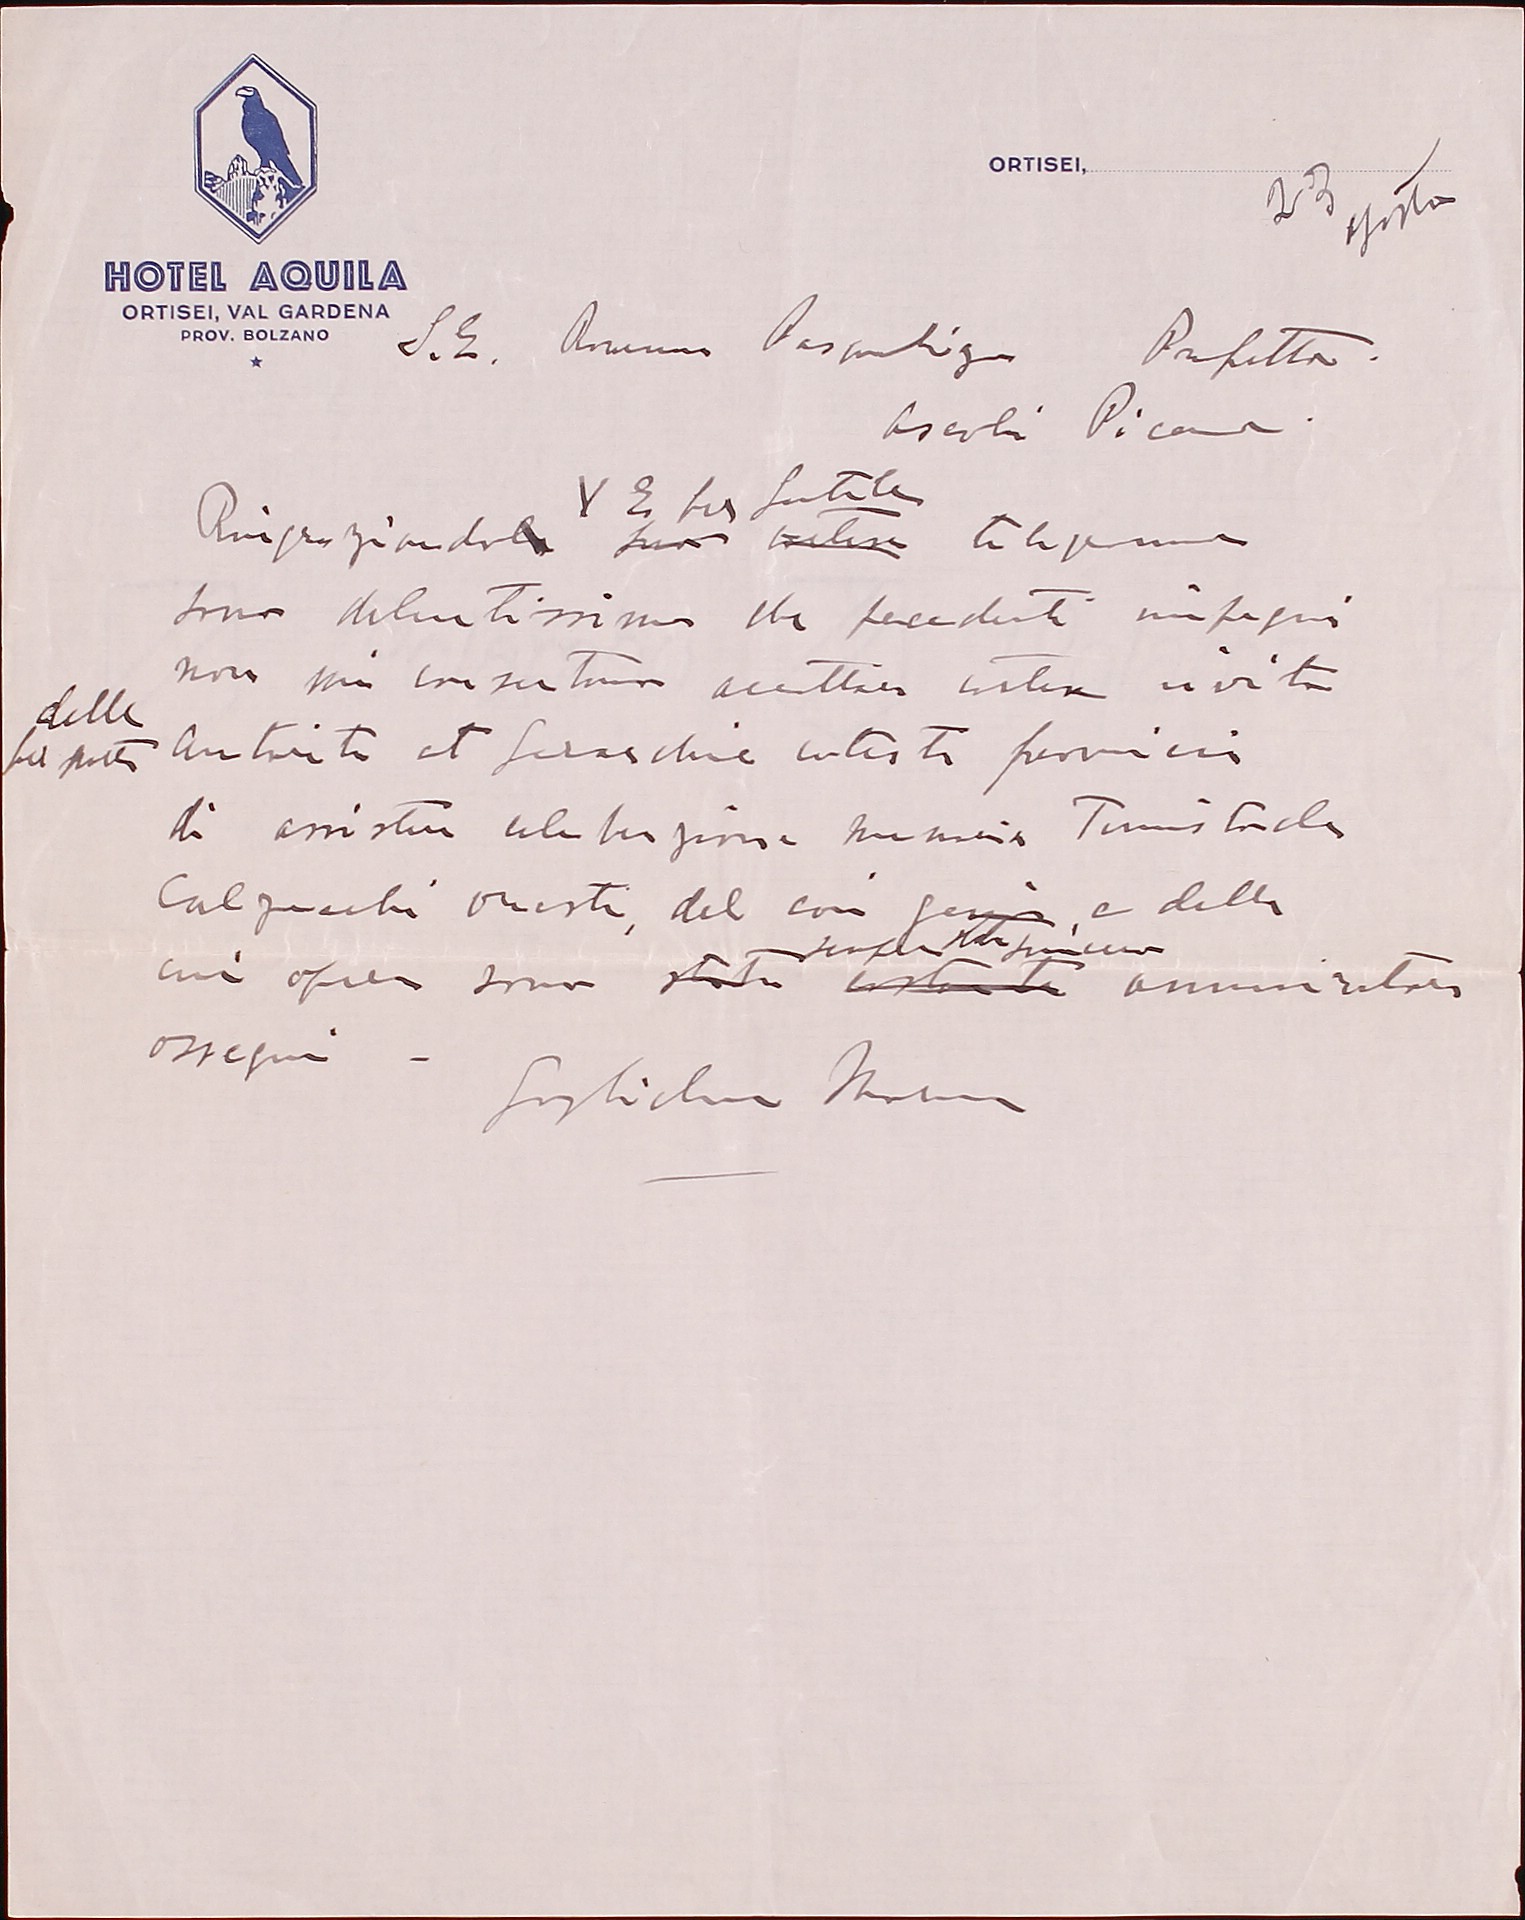 HOTEL AQUILA
ORTISEI, VAL GARDENA
PROV. BOLZANO
ORTISEI,
23 agosto
S. E. Prefetto.
Ascoli Piceno.
V E per gentile
Ringraziandola suo cortese telegramma
sono dolentissimo che precedenti impegni
non mi consentano accettare cortese invito
delle
per parte Autorità et Gerarchie cotesta provincia
di assistere celebrazione memoria Temistocle
Calzecchi Onesti, del cui genio, e della
sempre sincero
cui opera sono stato costante ammiratore
ossequi -
Guglielmo Marconi